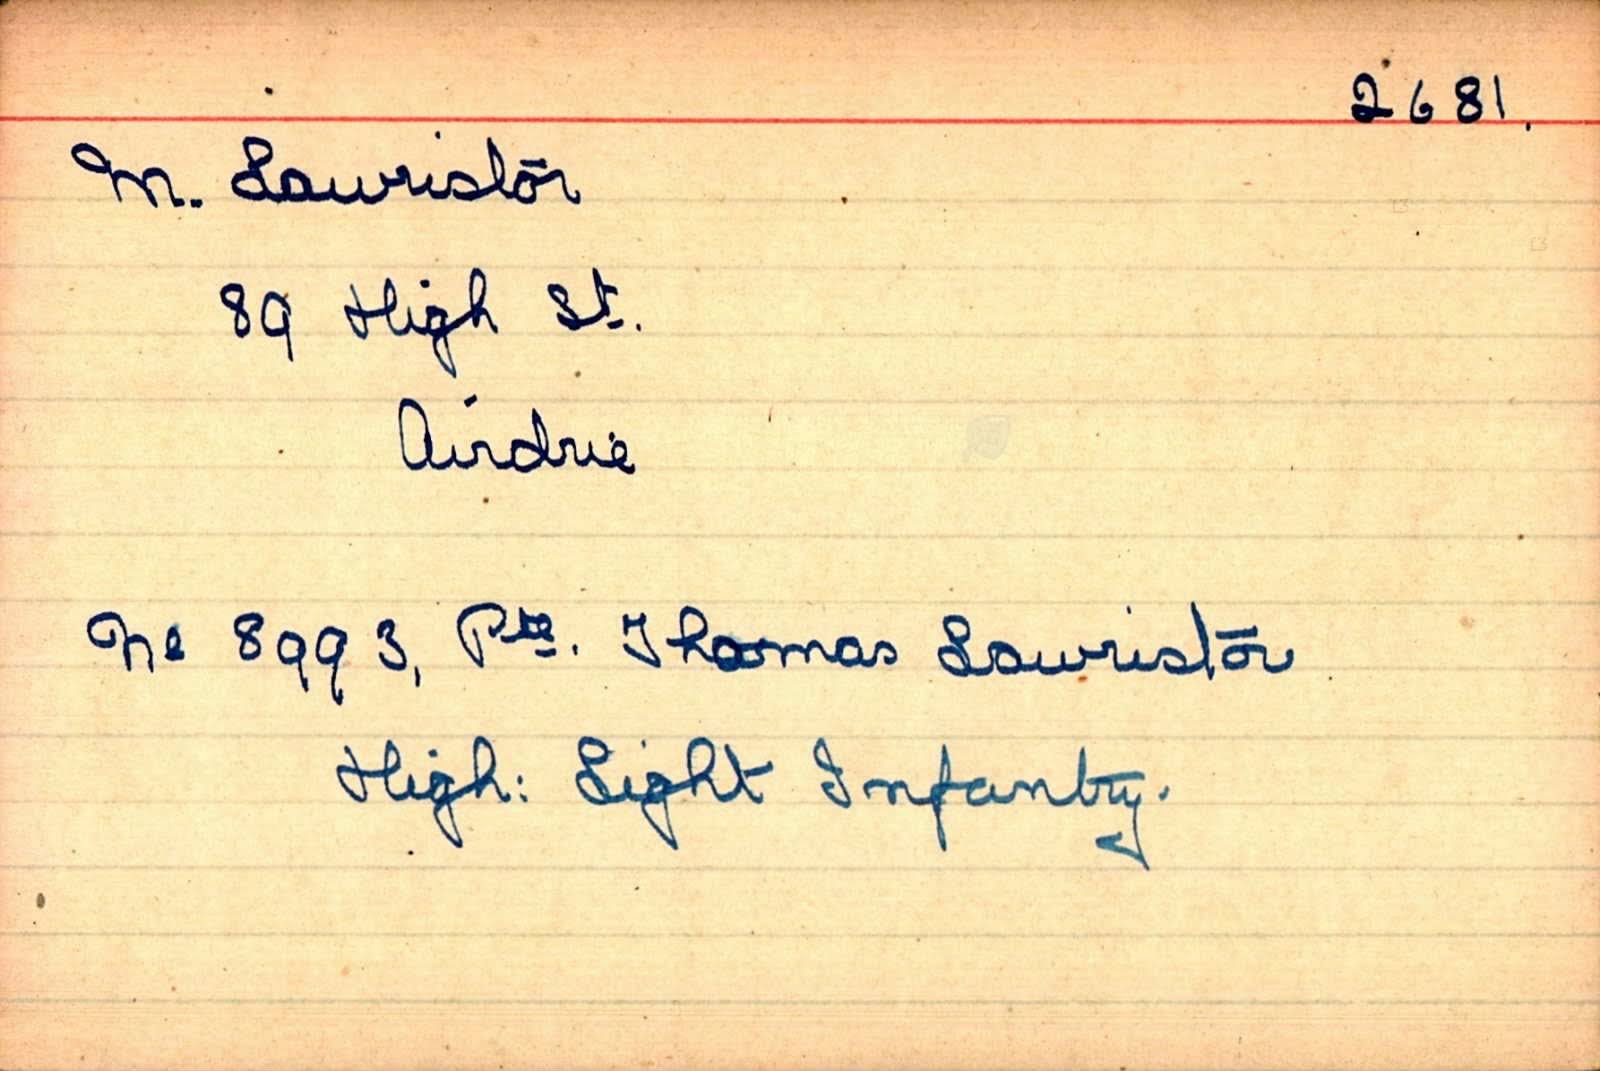 2681.
M. Lawriston
89 High St.
Airdrie
No 8993, Pte. Thomas Lawriston
High: Light Infantry.